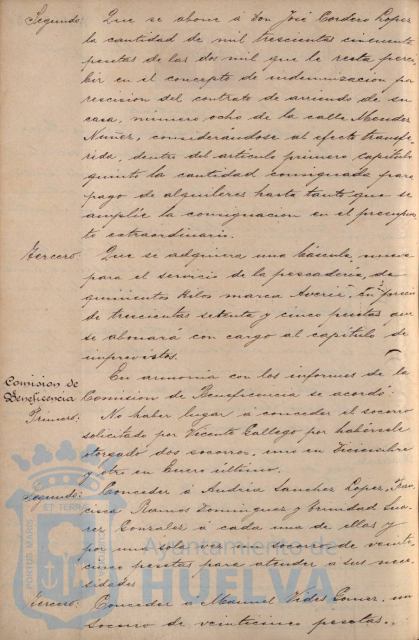 Segundo: Que se abone á Don José Cordero Lopez
la cantidad de mil trescientas cincuenta
pesetas de las dos mil que le resta perci-
bir en el concepto de indemnización por
rescision del contrato de arriendo de su
casa, número ocho de la calle Mendez
Nuñez, considerándose al efecto transfe-
rida, dentro del artículo primero capítulo
quinto la cantidad consignada para
pago de alquileres hasta tanto que se
amplie la consignacion en el presupues-
to extraordinario.
Tercero: Que se adquiera una báscula nueva
para el servicio de la pescadería, de
quinientos kilos marca Averis, en precio
de trescientas setenta y cinco pesetas que
se abonará con cargo al capítulo de
imprevistos.
Comision de
Beneficencia
En armonia con los informes de la
Comision de Beneficencia se acordó:
Primero: No haber lugar á conceder el socorro
solicitado por Vicente Gallego por habérsele
otorgado dos socorros, uno en Diciembre
y otro en Enero último.
Segundo: Conceder á Andrea Sanchez Lopez, Fran-
cisca Ramos Dominguez y Trinidad Sua-
rez Gonzalez á cada una de ellas y
por una sola vez un socorro de veinti-
cinco pesetas para atender á sus nece-
sidades
Tercero: Conceder á Manuel Vides Gomez, un
socorro de veinticinco pesetas.
PORTUS MARIS ET TERRAE
Ayuntamiento de
HUELVA